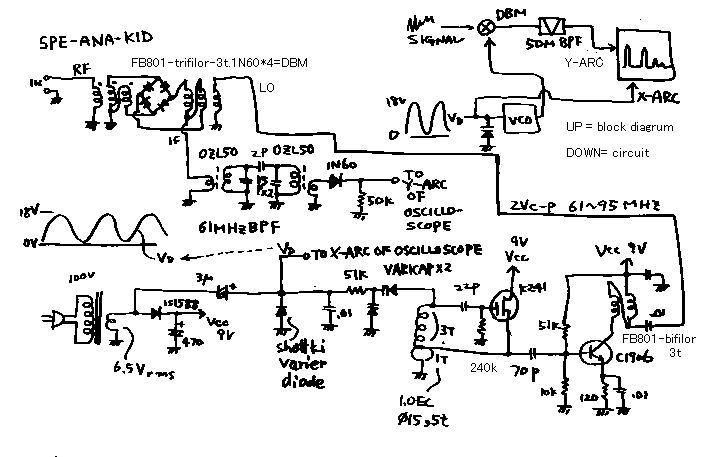 SPE-ANA-KID
FB801-trifilor-3t.1N60*4=DBM
RF
IN
LO
IF
SIGNAL
DBM
50M BPF
Y-ARC
X-ARC
18V
0
VD
VCO
UP = block diagrum
DOWN= circuit
OZL50
2P
OZL50
1N60
TO
Y-ARC
OF
OSCILLO-
SCOPE
50K
61MHzBPF
2Vc-P 61~95 MHZ
18V
0V
VD
VD
TO X-ARC OF OSCILLOSCOPE
100V
3μ
51K
VARICAPX2
22P
9V
Vcc
K241
Vcc 9V
1S1588
Vcc
9V
470
.01
6.5Vrms
shottki
varier
diode
3T
1T
240k
70p
51K
10k
C1906
120
.01
.01
FB801-bifilor
3t
1.0EC
Ø15,5t